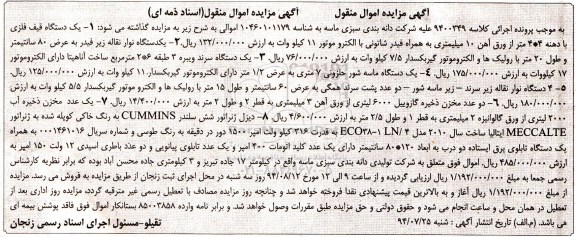 آگهی مزایده اموال منقول آگهی مزایده اموال منقول(اسناد ذمه ای)
به موجب پرونده اجرائی کلاسه ۹۴۰۰۳۴۹ علیه شرکت دانه بندی سبزی ماسه به شناسه ۱۰۴۶۰۱۰۱۱۷۹ اموالی به شرح زیر به مزایده گذاشته می شود: ۱- یک دستگاه قیف فلزی
با دهنه ۴*۴ متر از ورق آهن ۱۰ میلیمتری به همراه فیدر شاتونی با الکترو موتور ۱۱ کیلو وات به ارزش ۱۳۲/۰۰۰/۰۰۰ ریال ۲- یکدستگاه نوار نقاله زیر فیدر به عرض ۸۰ سانتیمتر
و طول ۲۰ متر با رولیک ها و الکتروموتور گیربکسدار ۷/۵ کیلو وات به ارزش ۷۶/۰۰۰/۰۰۰ ریال ۳- یک دستگاه سرند ویبره ۳ طبقه ۶*۲ مترمربع ساخت آناهیتا دارای الکتروموتور
۱۷ کیلووات به ارزش ۱۷۵/۰۰۰/۰۰۰ ریال. ۴- یک دستگاه ماسه شور حلزونی ۷ متری به عرض ۱/۲ متر دارای الکتروموتور گیربکسدار ۱۱ کیلو وات به ارزش ۱۲۵/۰۰۰/۰۰۰ ریال.
۵- ۴ دستگاه نوار نقاله زیر سرند – زیر ماسه شور – دو عدد پشت سرند همگی به عرض ۶۰ سانتیمتر و طول ۱۵ متر با رولیک ها و الکتروموتور گیربکسدار ۵/۵ کیلو وات به ارزش
۱۸۰/۰۰۰/۰۰۰ ریال. ۶- دو عدد مخزن ذخیره گازوییل ۶۰۰۰ لیتری از ورق آهن ۳ میلیمتری به قطر ۲ و طول ۲ متر به ارزش ۱۴/۴۰۰/۰۰۰ ریال ۷- یک عدد مخزن ذخیره آب
۲۰۰۰ لیتری از ورق گالوانیزه ۲ میلیمتری به قطر ۱ و طول ۲/۵ متر به ارزش ۴/۶۰۰/۰۰۰ ریال ۸- دیزل ژنراتور شش سلندر CUMMINS به رنگ خاکی کوپله شده به ژنراتور
MECCALTE ایتالیا ساخت سال ۲۰۱۰ مدل ECO۳۸-۱ LN/۴ به قدرت ۳۱۶ کیلو ولت امپر ۱۵۰۰ دور در دقیقه به رنگ طوسی و شماره سریال ۰۰۰۱۴۶۱۰۱۶ به همراه
یک دستگاه تابلوی برق ایستاده دو درب به ابعاد ۱۲۰*۸۰ سانتیمتر دارای یک عدد کلید اتومات ۴۰۰ امپر و یک عدد تابلوی پیانویی و دو عدد باطری اسیدی ۱۲ ولت ۱۵۰ امپر به
ارزش ۴۸۵/۰۰۰/۰۰۰ ریال. اموال فوق متعلق به شرکت تولیدی دانه بندی سبزی ماسه واقع در کیلومتر ۱۷ جاده تبریز و ۳ کیلومتری جاده محسن آباد بوده که برابر نظریه کارشناس
رسمی جمعا به مبلغ ۱/۱۹۲/۰۰۰/۰۰۰ ریال ارزیابی گردیده و از ساعت ۹ الی ۱۲ مورخ ۹۴/۰۸/۱۲ روز سه شنبه در محل اجرای ثبت زنجان از طریق مزایده به فروش می رسد. مزایده
از مبلغ ۱/۱۹۲/۰۰۰/۰۰۰ ریال آغاز و به بالاترین قیمت پیشنهادی نقدا فروخته خواهد شد و چنانچه روز مزایده مصادف با تعطیل رسمی غیر مترقبه گردد، مزایده روز اداری بعد از
تعطیل در همان محل و ساعت انجام می شود و حقوق دولتی و حق مزایده طبق مقررات وصول خواهد شد. و برابر نامه وارده ۸۵۰۰۳۸۵۸ بستانکار اموال فوق فاقد پوشش بیمه ای
می باشد. (م.الف) تاریخ انتشار آگهی : شنبه ۹۴/۰۷/۲۵ تقیلو-مسئول اجرای اسناد رسمی زنجان